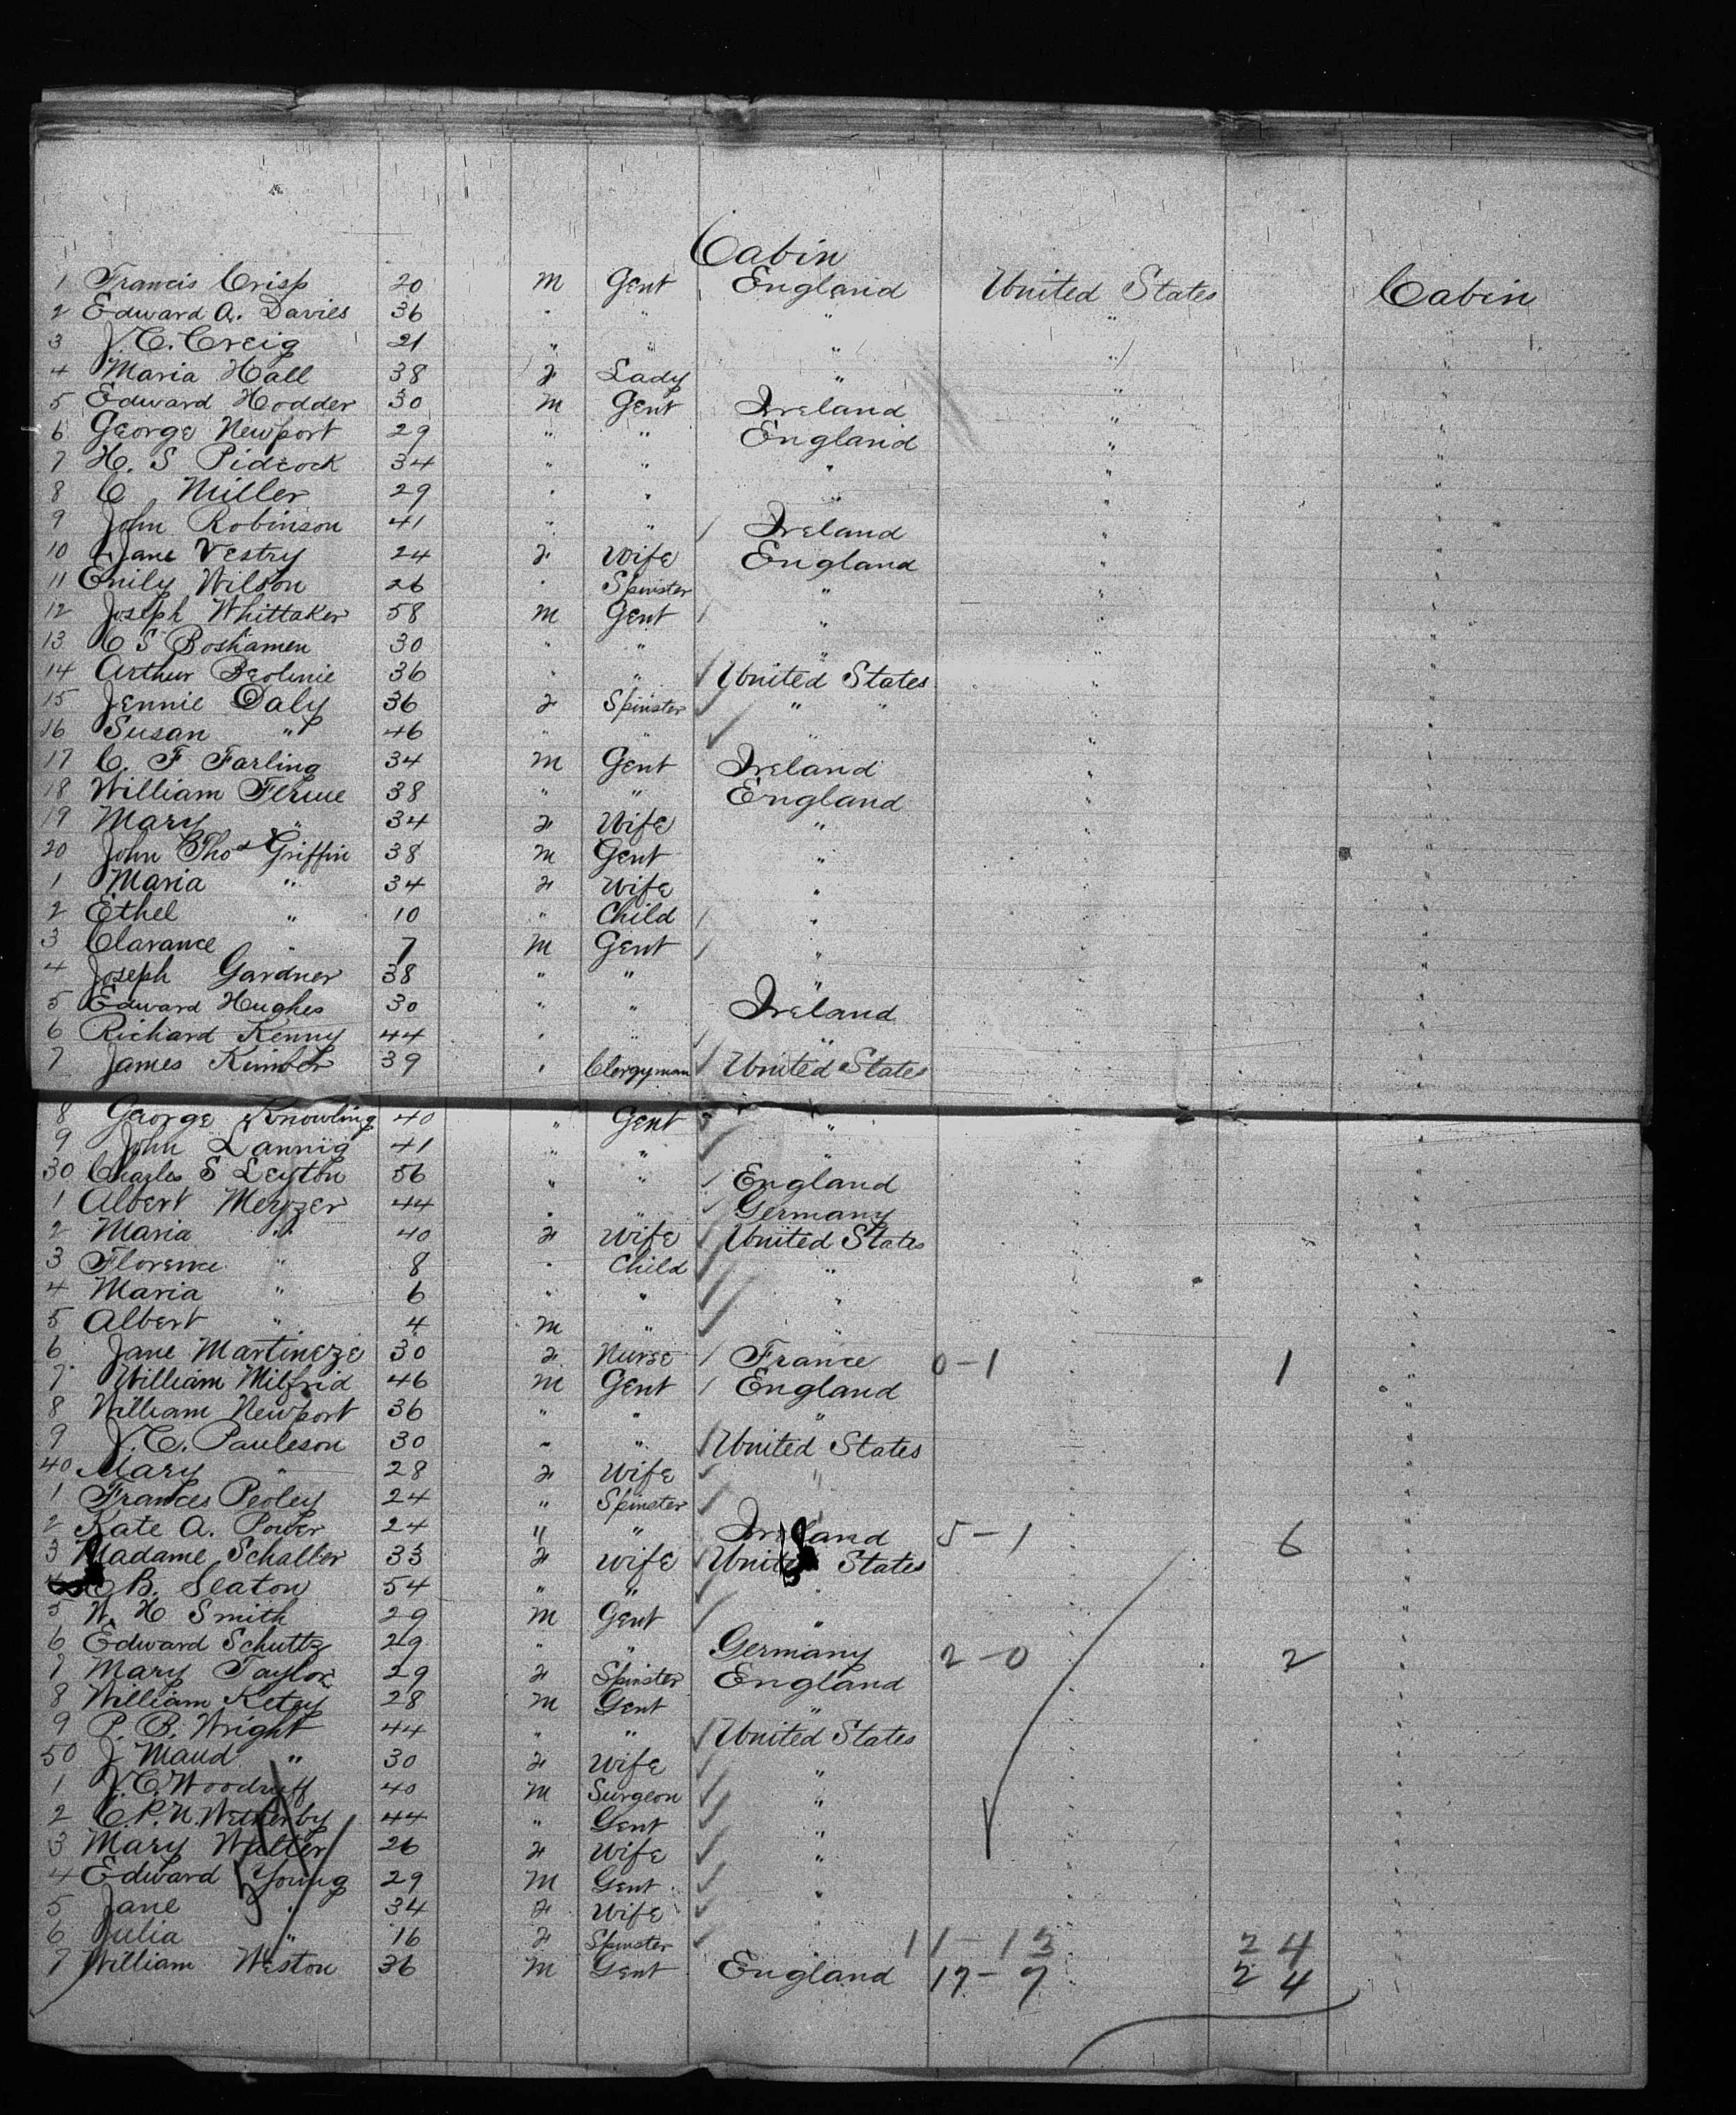 Cabin
1 Francis Crisp 20 M Gent England United States Cabin
2 Edward A. Davies 36 " " " " "
3 J. C. Creig 21 " " " " "
4 Maria Hall 38 F Lady " " "
5 Edward Hodder 30 M Gent Ireland " "
6 George Newport 29 " " England " "
7 H. S Pidcock 34 " " " " "
8 C Miller 29 " " " " "
9 John Robinson 41 " " Ireland " "
10 Jane Vestry 24 F Wife England " "
11 Emily Wilson 26 " Spinster " " "
12 Joseph Whittaker 58 M Gent " " "
13 C S Boshamen 30 " " " " "
14 Arthur 36 " " United States " "
15 Jennie Daly 36 F Spinster " " " "
16 Susan " 46 " " " " "
17 C. F Farling 34 M Gent Ireland " "
18 William 38 " " England " "
19 Mary " 34 F Wife " " "
20 John Thos Griffin 38 M Gent " " "
1 Maria " 34 F Wife " " "
2 Ethel " 10 " Child " " "
3 Clarance " 7 M Gent " " "
4 Joseph Gardner 38 " " " " "
5 Edward Hughes 30 " " Ireland " "
6 Richard Kenny 44 " " " " "
7 James Kimber 39 " Clergyman United States " "
8 George Knowling 40 " Gent " " "
9 John Lannig 41 " " " " "
30 Charles S Leyton 56 " " England " "
1 Albert Meyzer 44 " " Germany " "
2 Maria " 40 F Wife United States " "
3 Florence " 8 " Child " " "
4 Maria " 6 " " " " "
5 Albert " 4 M " " " "
6 Jane Martineze 30 F Nurse France 0-1 1 "
7 William Milfrid 46 M Gent England " "
8 William Newport 36 " " " " "
9 J. C. Pauleson 30 " " United States " "
40 Mary " 28 F Wife " " "
1 Frances Peoley 24 " Spinster " " "
2 Kate A. Power 24 " " Ireland 5-1 6 "
3 Madame Schaller 33 F Wife United States " "
4 C B. Seaton 54 " " " " "
5 W. H Smith 29 M Gent " " "
6 Edward Schultz 29 " " Germany 2-0 2 "
7 Mary Taylor 29 F Spinster England " "
8 William Ketey 28 M Gent " " "
9 P. B. Wright 44 " " United States " "
50 J Maud " 30 F Wife " " "
1 J. C. Woodruff 40 M Surgeon " " "
2 C. P. N. Wetherby 44 " Gent " " "
3 Mary Walter 26 F Wife " " "
4 Edward Young 29 M Gent " " "
5 Jane " 34 F Wife " " "
6 Julia " 16 F Spinster " 11-13 24 "
7 William Weston 36 M Gent England 17-7 24 "